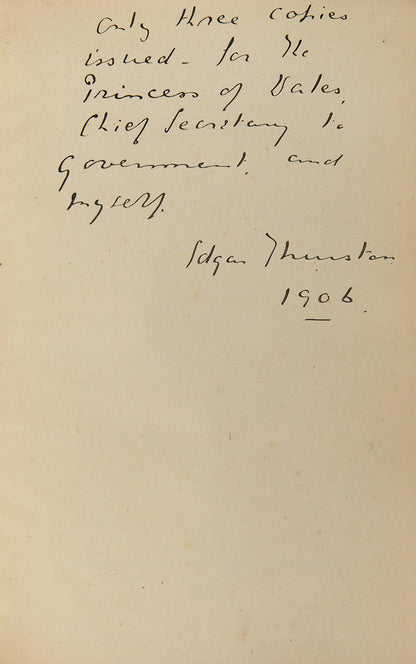 Only three copies
issued - for the
Princess of Wales,
Chief Secretary to
Government, and
myself.
Edgar Thurston
1906.